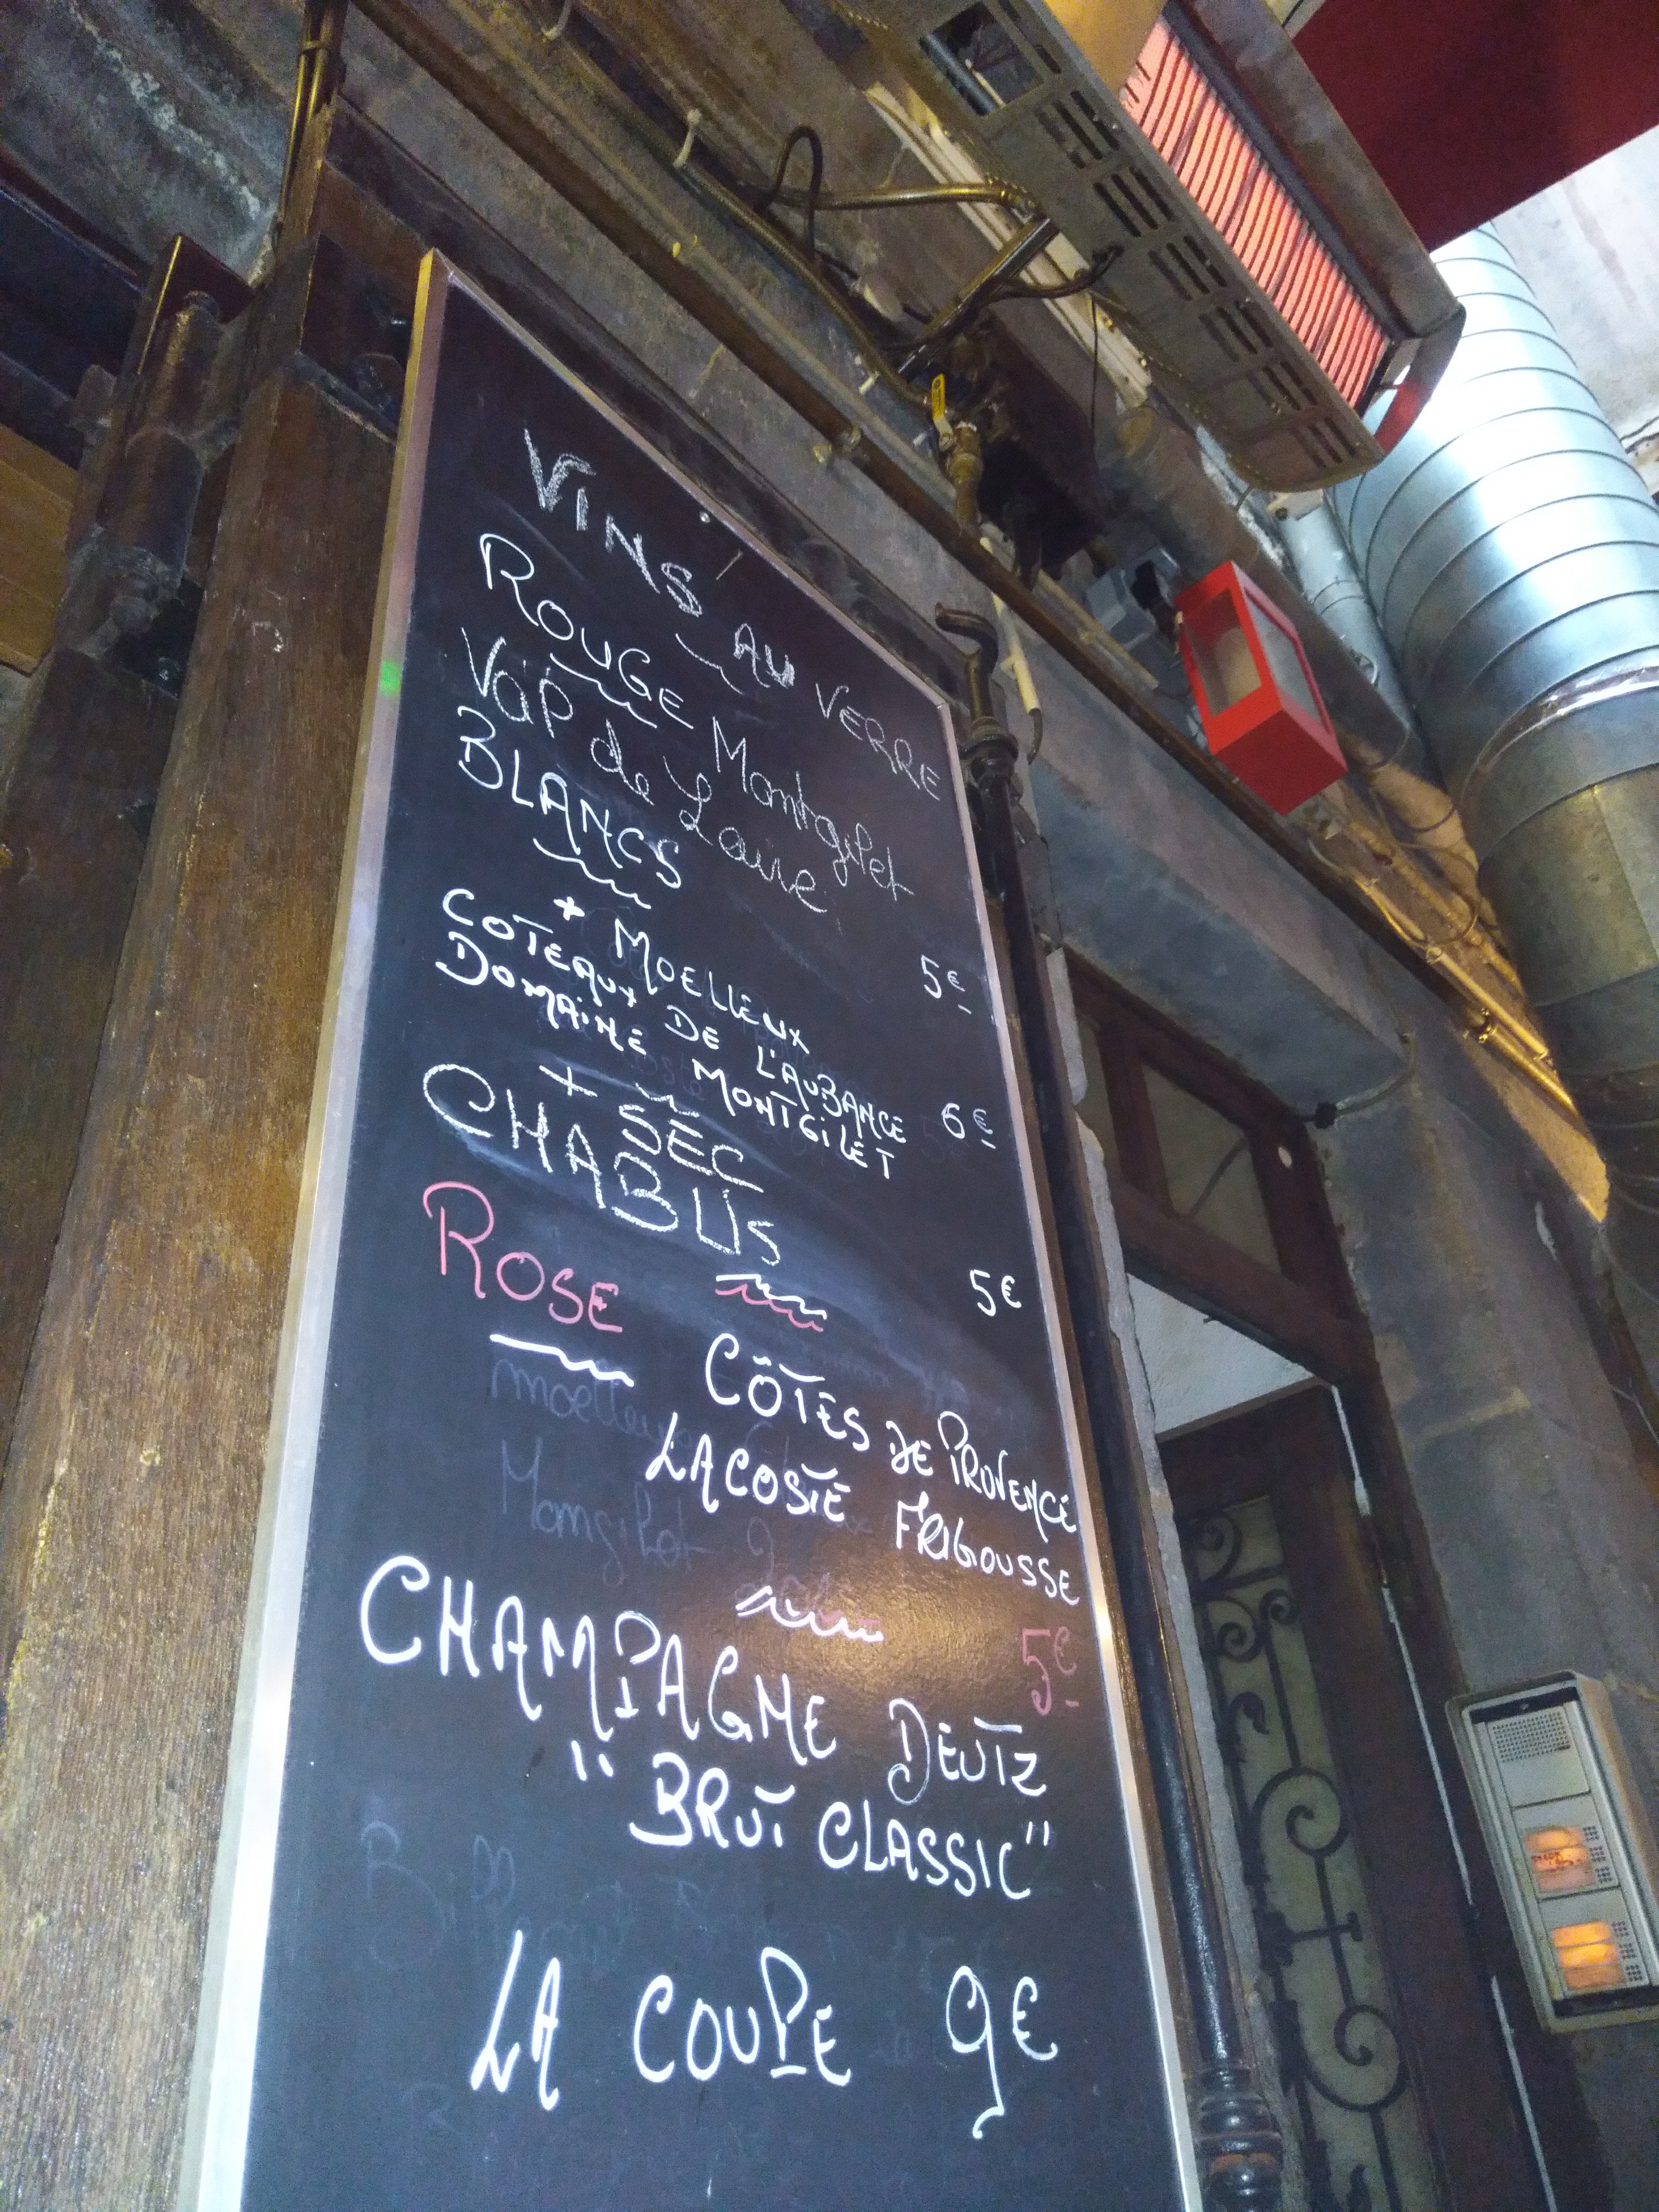 VINS AU VERRE
ROUGE Montgilet
Vap de Loire
5€
BLANCS
+ MOELLEUX
COTEAUX DE L'AUBANCE 6€
DOMAINE MONTGILET
+ SEC
CHABLIS
5€
ROSE
CÔTES DE PROVENCE
LACOSTE FRIGOUSSE
5€
CHAMPAGNE DEUTZ
"BRUT CLASSIC"
LA COUPE 9€